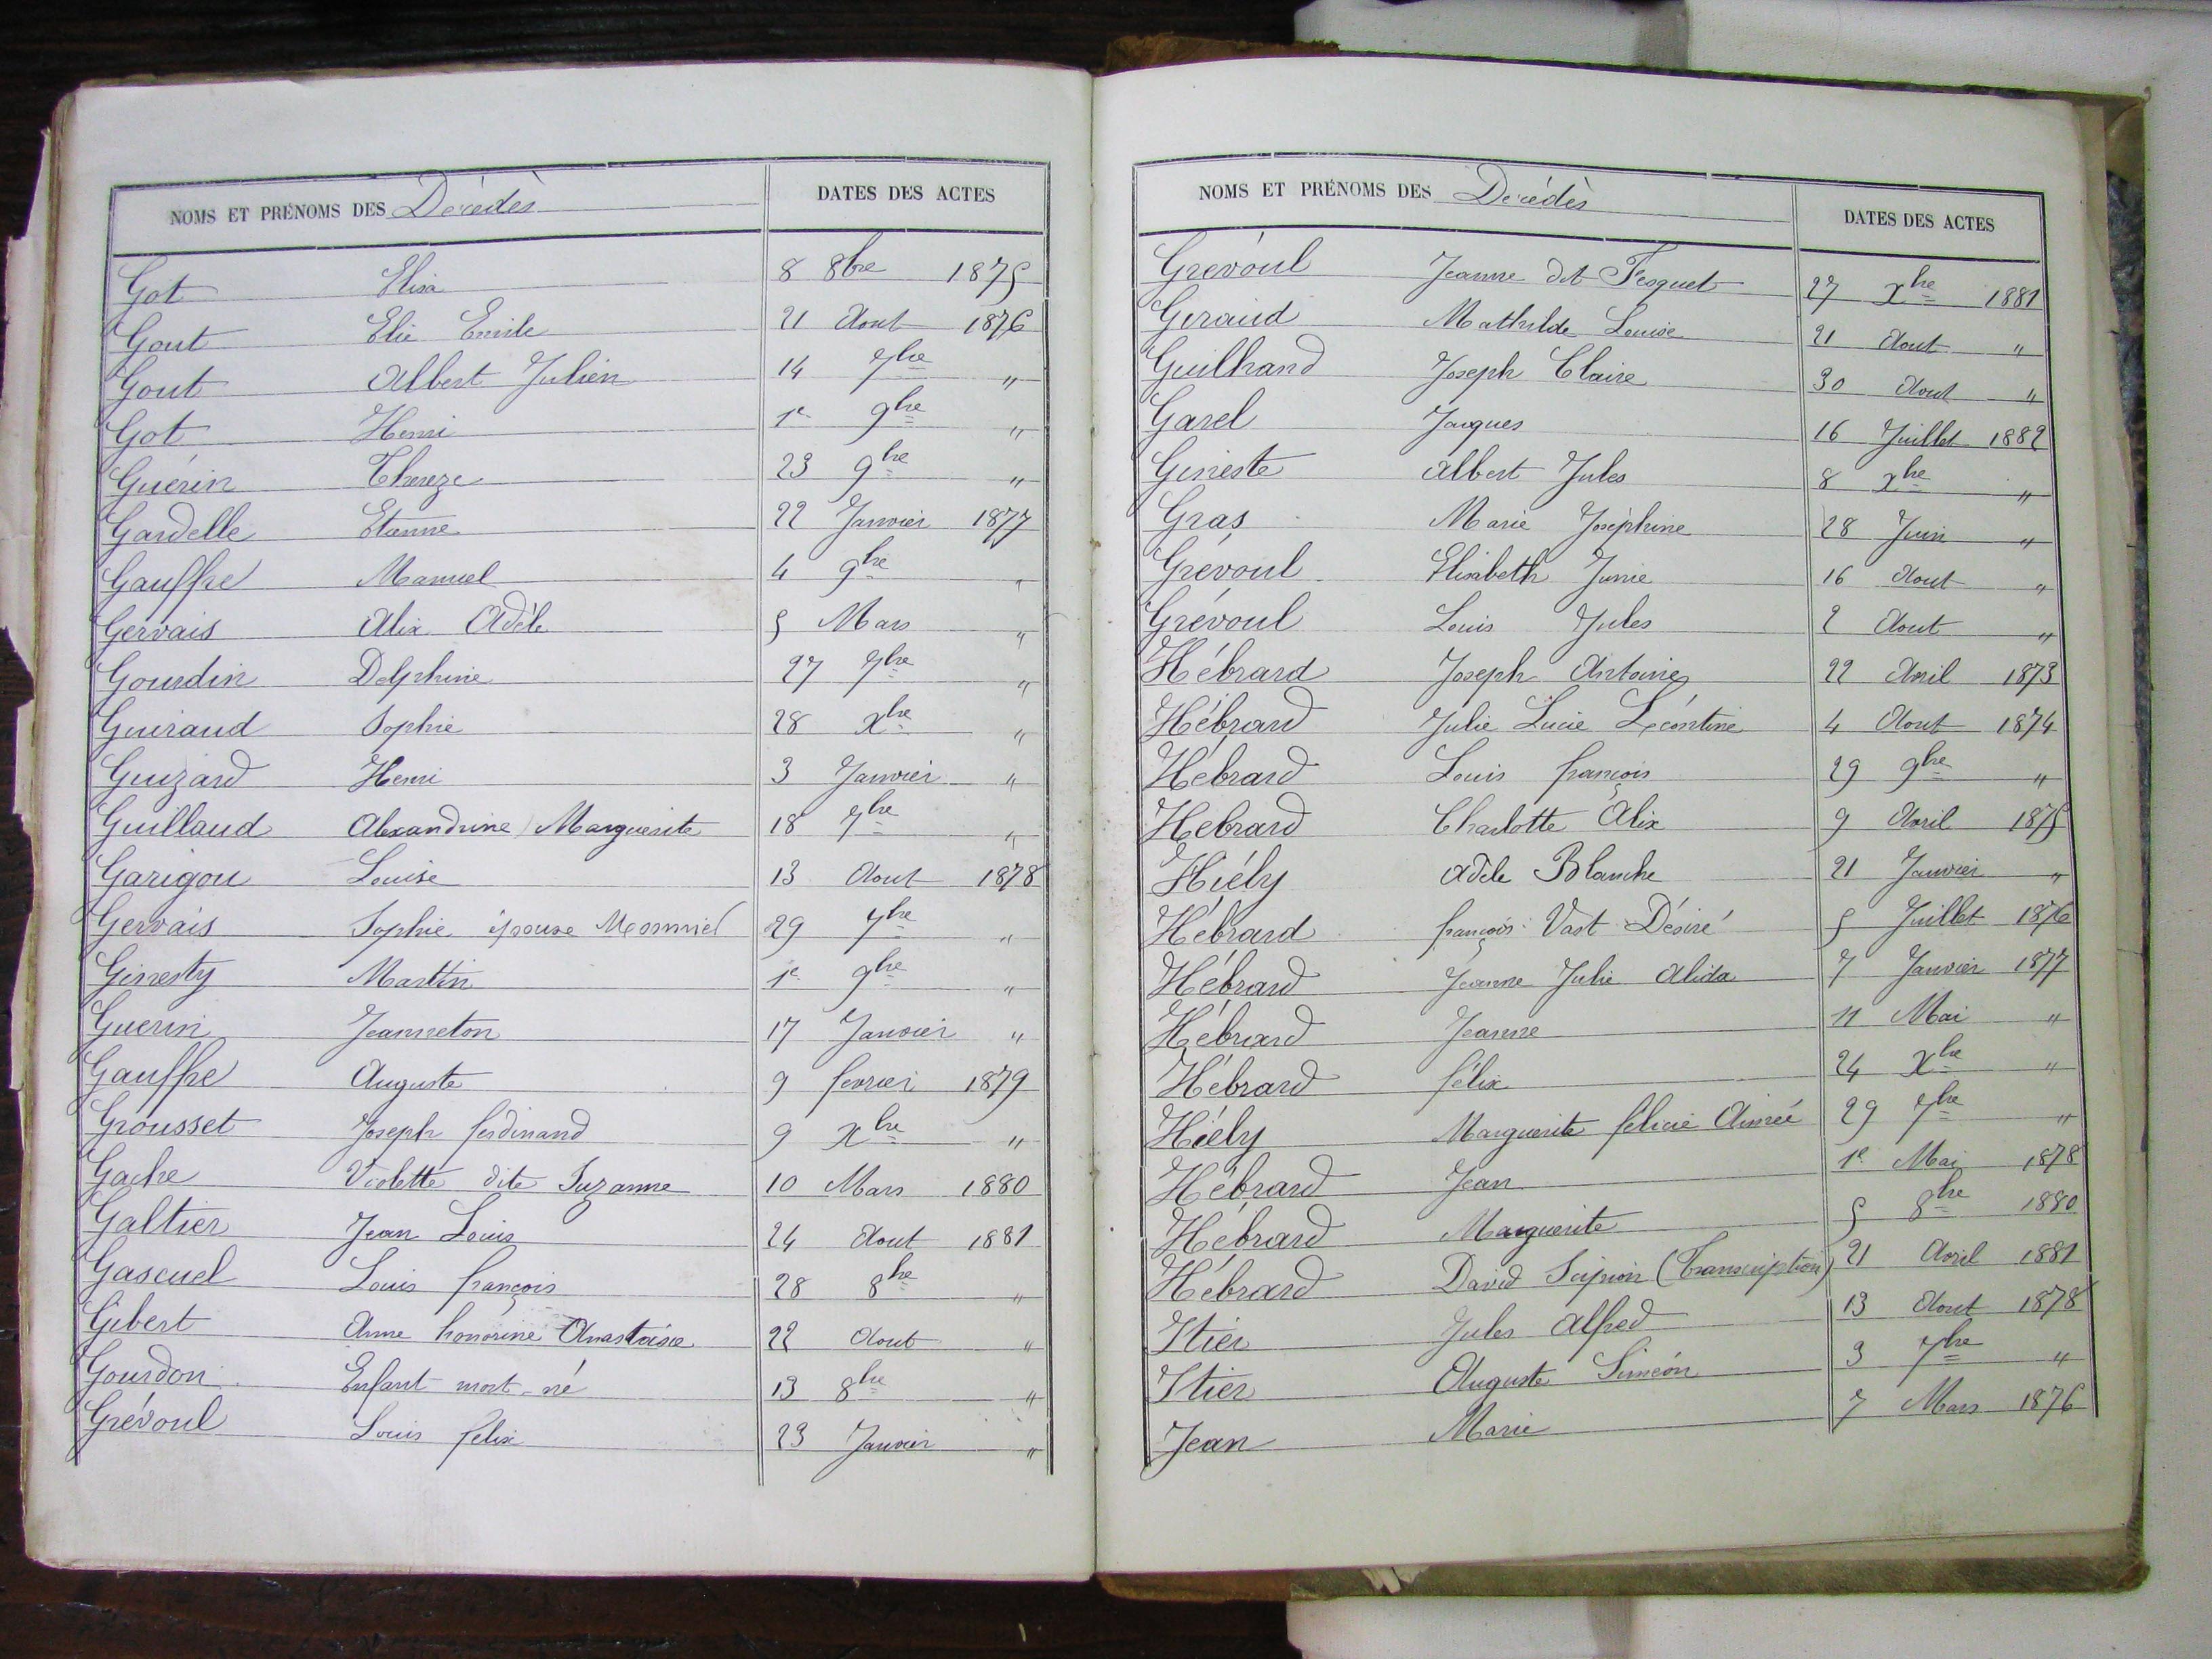 NOMS ET PRÉNOMS DES Décédès DATES DES ACTES
Got Elisa 8 8bre 1875
Gout Elie Emile 21 Aout 1876
Gout Albert Julien 14 7bre "
Got Henri 1e 9bre "
Guérin Thereze 23 9bre "
Gardelle Etienne 22 Janvier 1877
Gauffre Manuel 4 9bre "
Gervais Alix Adèle 5 Mars "
Gourdin Delphine 27 7bre "
Guiraud Sophie 28 Xbre "
Guizard Henri 3 Janvier "
Guillaud Alexandrine Marguerite 18 7bre "
Garigou Louise 13 Aout 1878
Gervais Sophie épouse 29 7bre "
Ginesty Martin 1e 9bre "
Guerin Jeanneton 17 Janvier "
Gauffre Auguste 9 fevrier 1879
Grousset Joseph ferdinand 9 Xbre "
Gache Violette dite Suzanne 10 Mars 1880
Galtier Jean Louis 24 Aout 1881
Gascuel Louis françois 28 8bre "
Gibert Anne honorine Anastasie 22 Aout "
Gourdon Enfant mort-né 13 8bre "
Grévoul Louis felix 23 Janvier "
NOMS ET PRÉNOMS DES Décédès DATES DES ACTES
Grevoul Jeanne dit Fesquet 27 Xbre 1881
Giraud Mathilde Louise 21 Aout "
Guilhand Joseph Claire 30 Aout "
Garel Jacques 16 Juillet 1882
Gineste Albert Jules 8 Xbre "
Gras Marie Joséphine 28 Juin "
Grévoul Elisabeth Junie 16 Aout "
Grévoul Louis Jules 2 Aout "
Hébrard Joseph Antoine 22 Avril 1873
Hébrard Julie Lucie Léontine 4 Aout 1874
Hébrard Louis françois 29 9bre "
Hébrard Charlotte Alix 9 Avril 1875
Hiély Adèle Blanche 21 Janvier "
Hébrard françois Vast Désiré 5 Juillet 1876
Hébrard Jeanne Julie Alida 7 Janvier 1877
Hébrard Jeanne 11 Mai "
Hébrard félix 24 Xbre "
Hiély Marguerite félicie Aimée 29 7bre "
Hébrard Jean 1e Mai 1878
Hébrard Marguerite 5 8bre 1880
Hébrard David Scipion (Transcription) 21 Avril 1881
Itier Jules Alfred 13 Aout 1878
Itier Auguste Siméon 3 7bre "
Jean Marie 7 Mars 1876